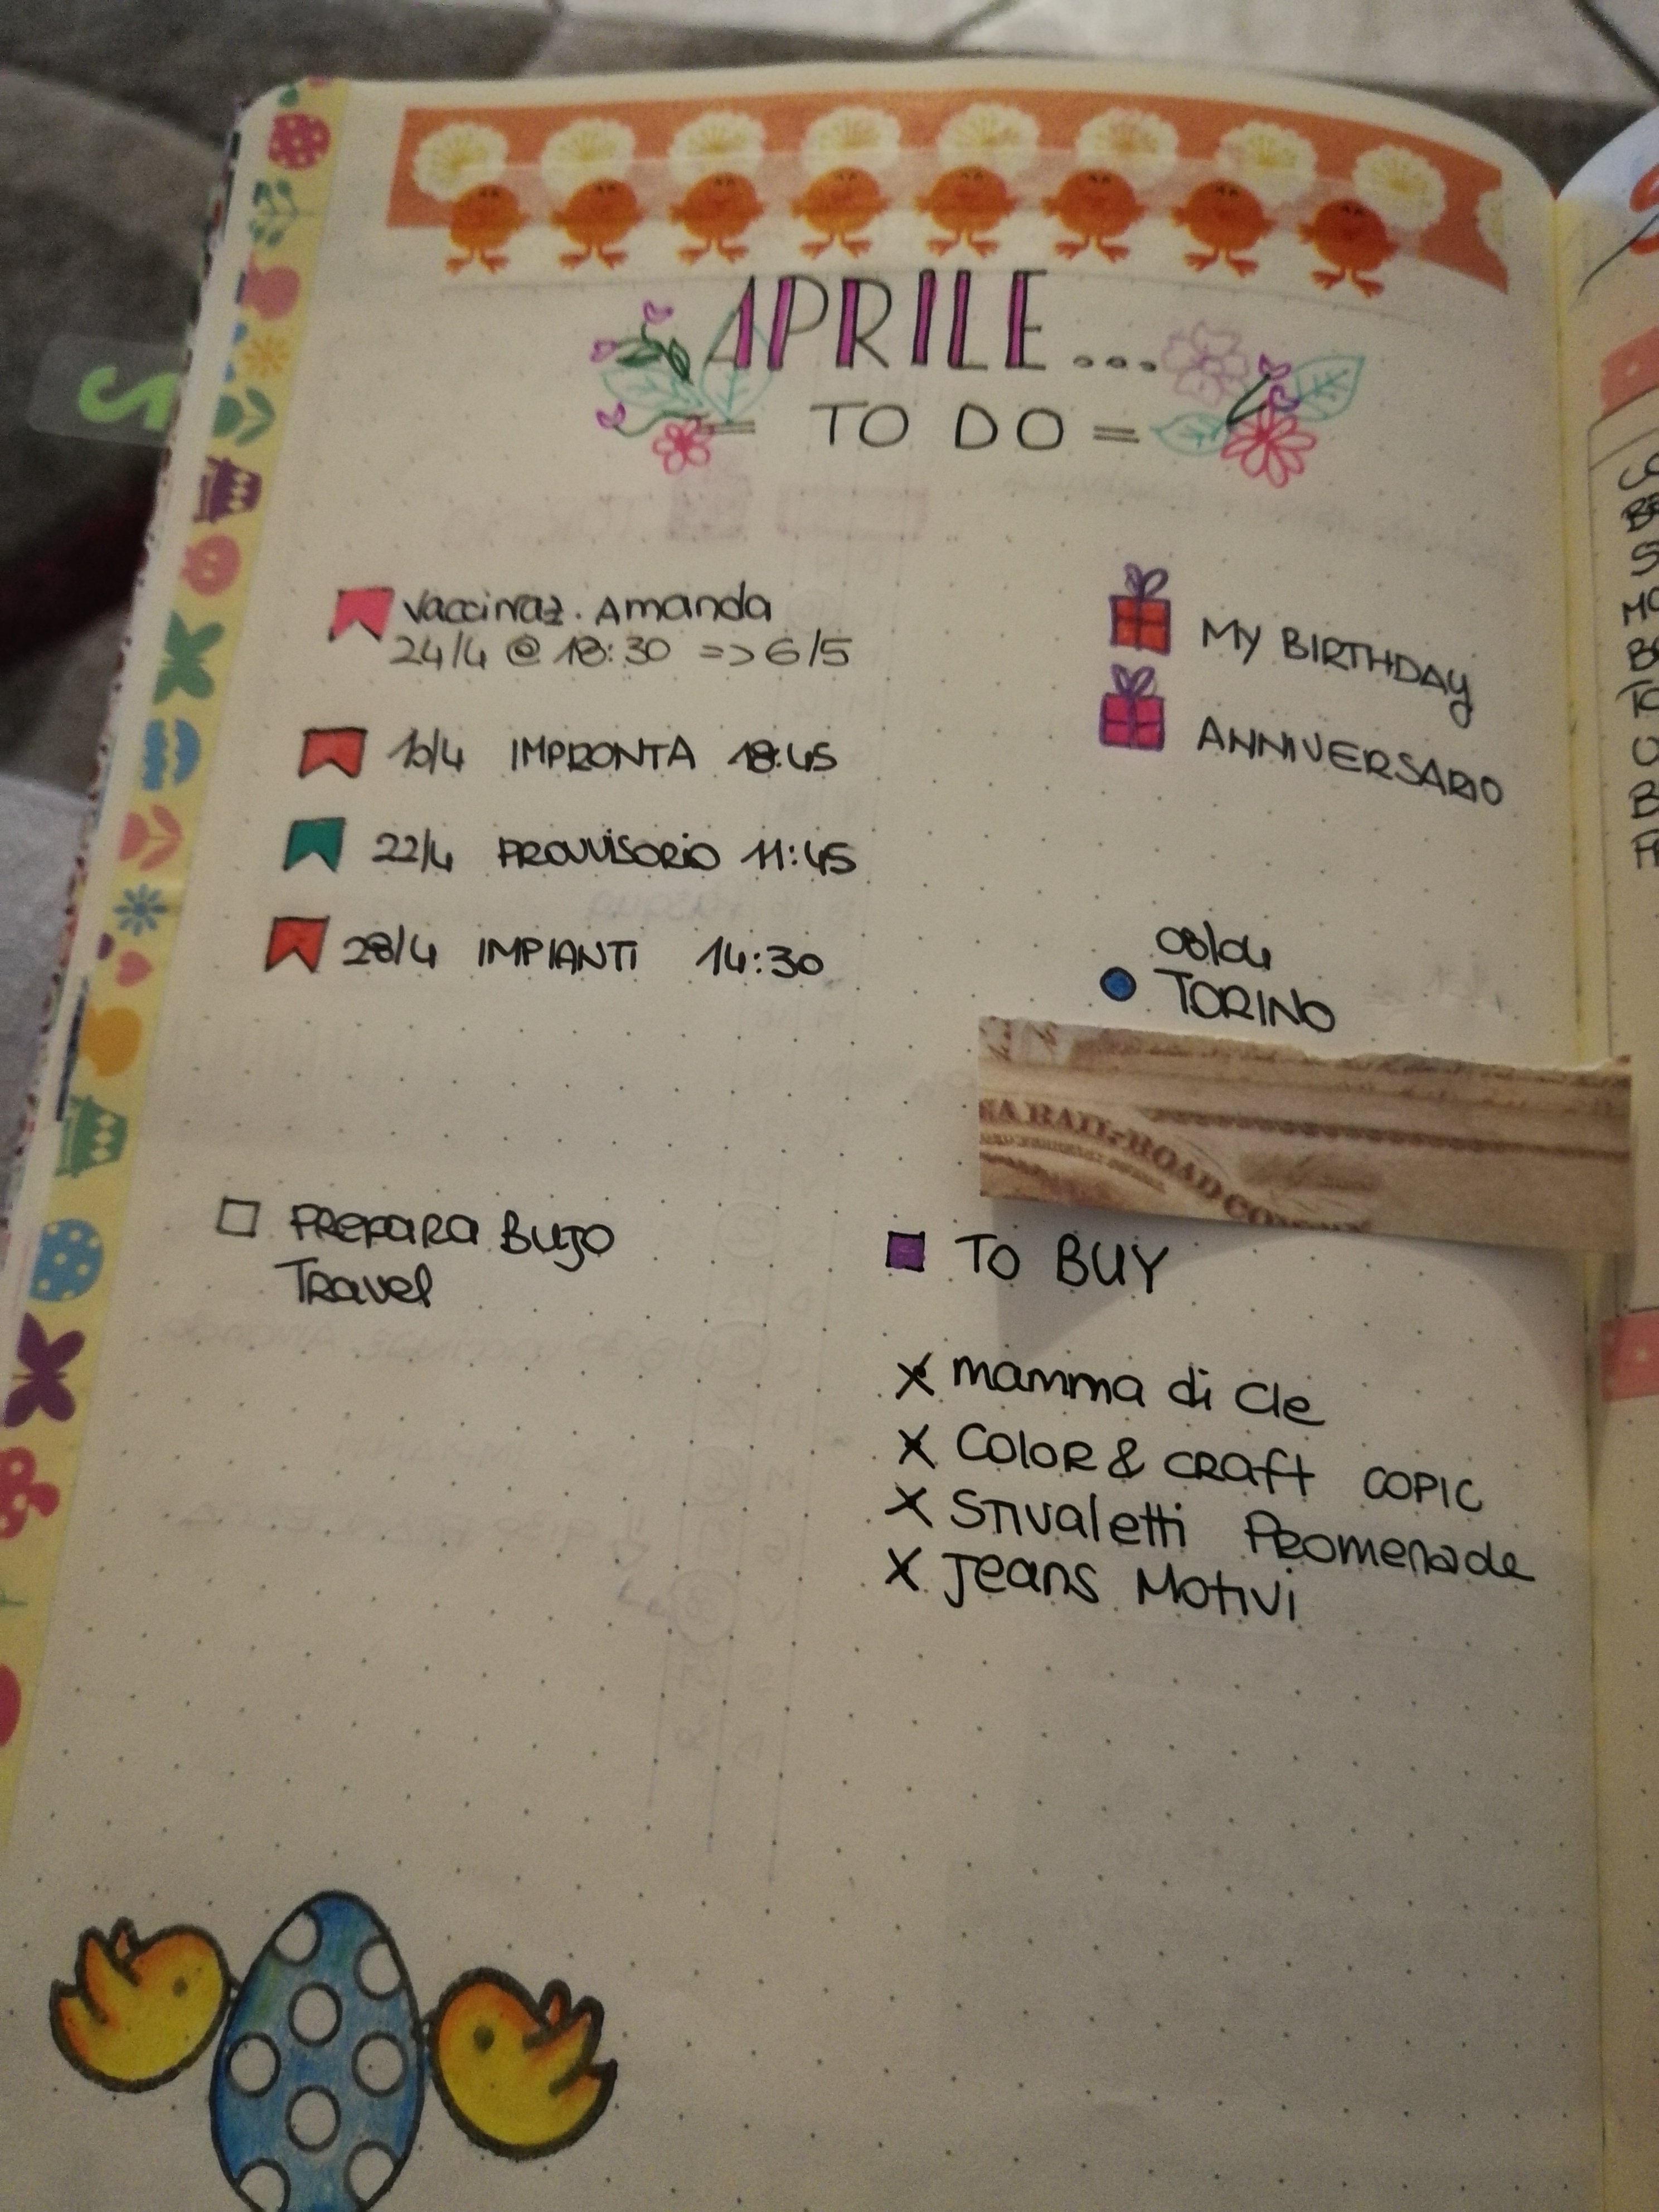 APRILE...
= TO DO =
Vaccinaz. Amanda
24/4 @ 18:30 => 6/5
10/4 IMPRONTA 18:45
22/4 PROVVISORIO 11:45
28/4 IMPIANTI 14:30
MY BIRTHDAY
ANNIVERSARIO
08/04
TORINO
RAIL-ROAD
PREPARA BUJO
Travel
TO BUY
X mamma di Cle
X Color & craft COPIC
X Stivaletti Promenade
X Jeans Motivi